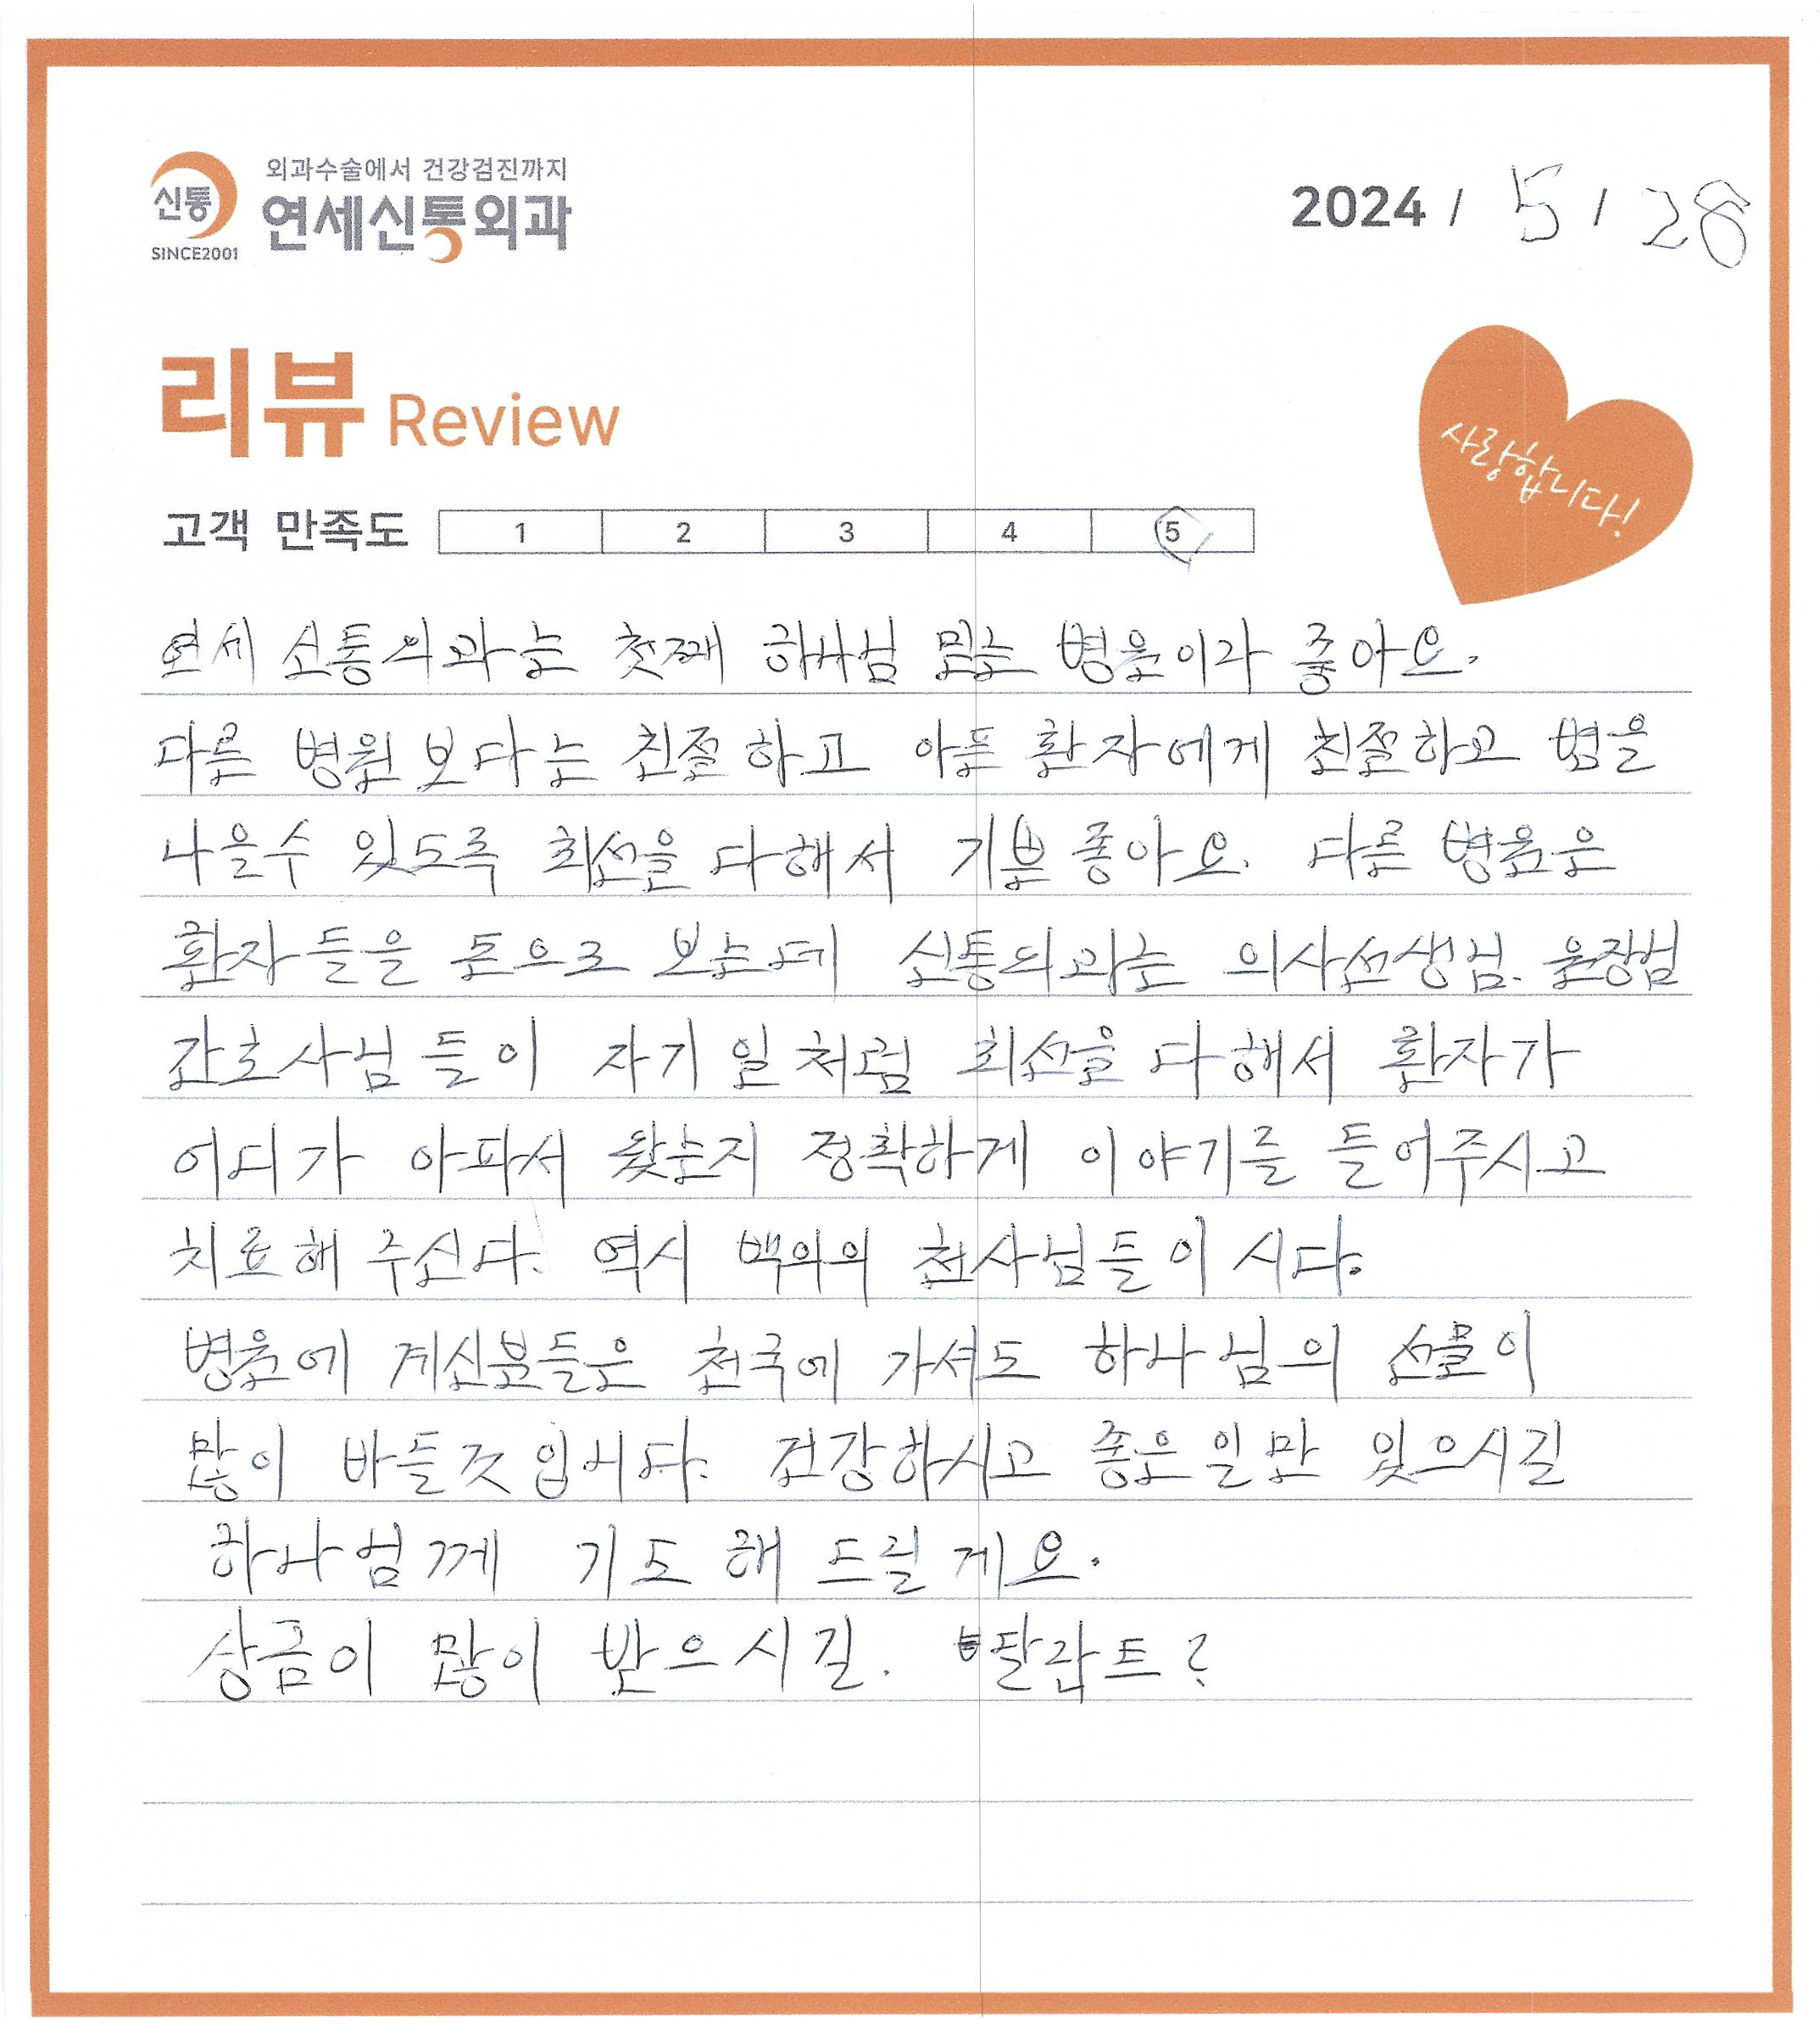 외과수술에서 건강검진까지
신통
SINCE2001
연세신통외과
2024 / 5 / 28
리뷰 Review
사랑합니다!
고객 만족도 1 2 3 4 5
연세 신통외과는 첫째 하나님 믿는 병원이라 좋아요.
다른 병원 보다는 친절하고 아픈 환자에게 친절하고 병을
나을수 있도록 최선을 다해서 기분 좋아요. 다른 병원은
환자들을 돈으로 보는데 신통외과는 의사선생님. 원장님
간호사님들이 자기 일처럼 최선을 다해서 환자가
어디가 아파서 왔는지 정확하게 이야기를 들어주시고
치료해 주신다. 역시 백의의 천사님들이 시다.
병원에 계신분들은 천국에 가셔도 하나님의 선물이
많이 바들것 입니다. 건강하시고 좋은일만 있으시길
하나님께 기도 해 드릴게요.
상금이 많이 받으시길. 딸란트?